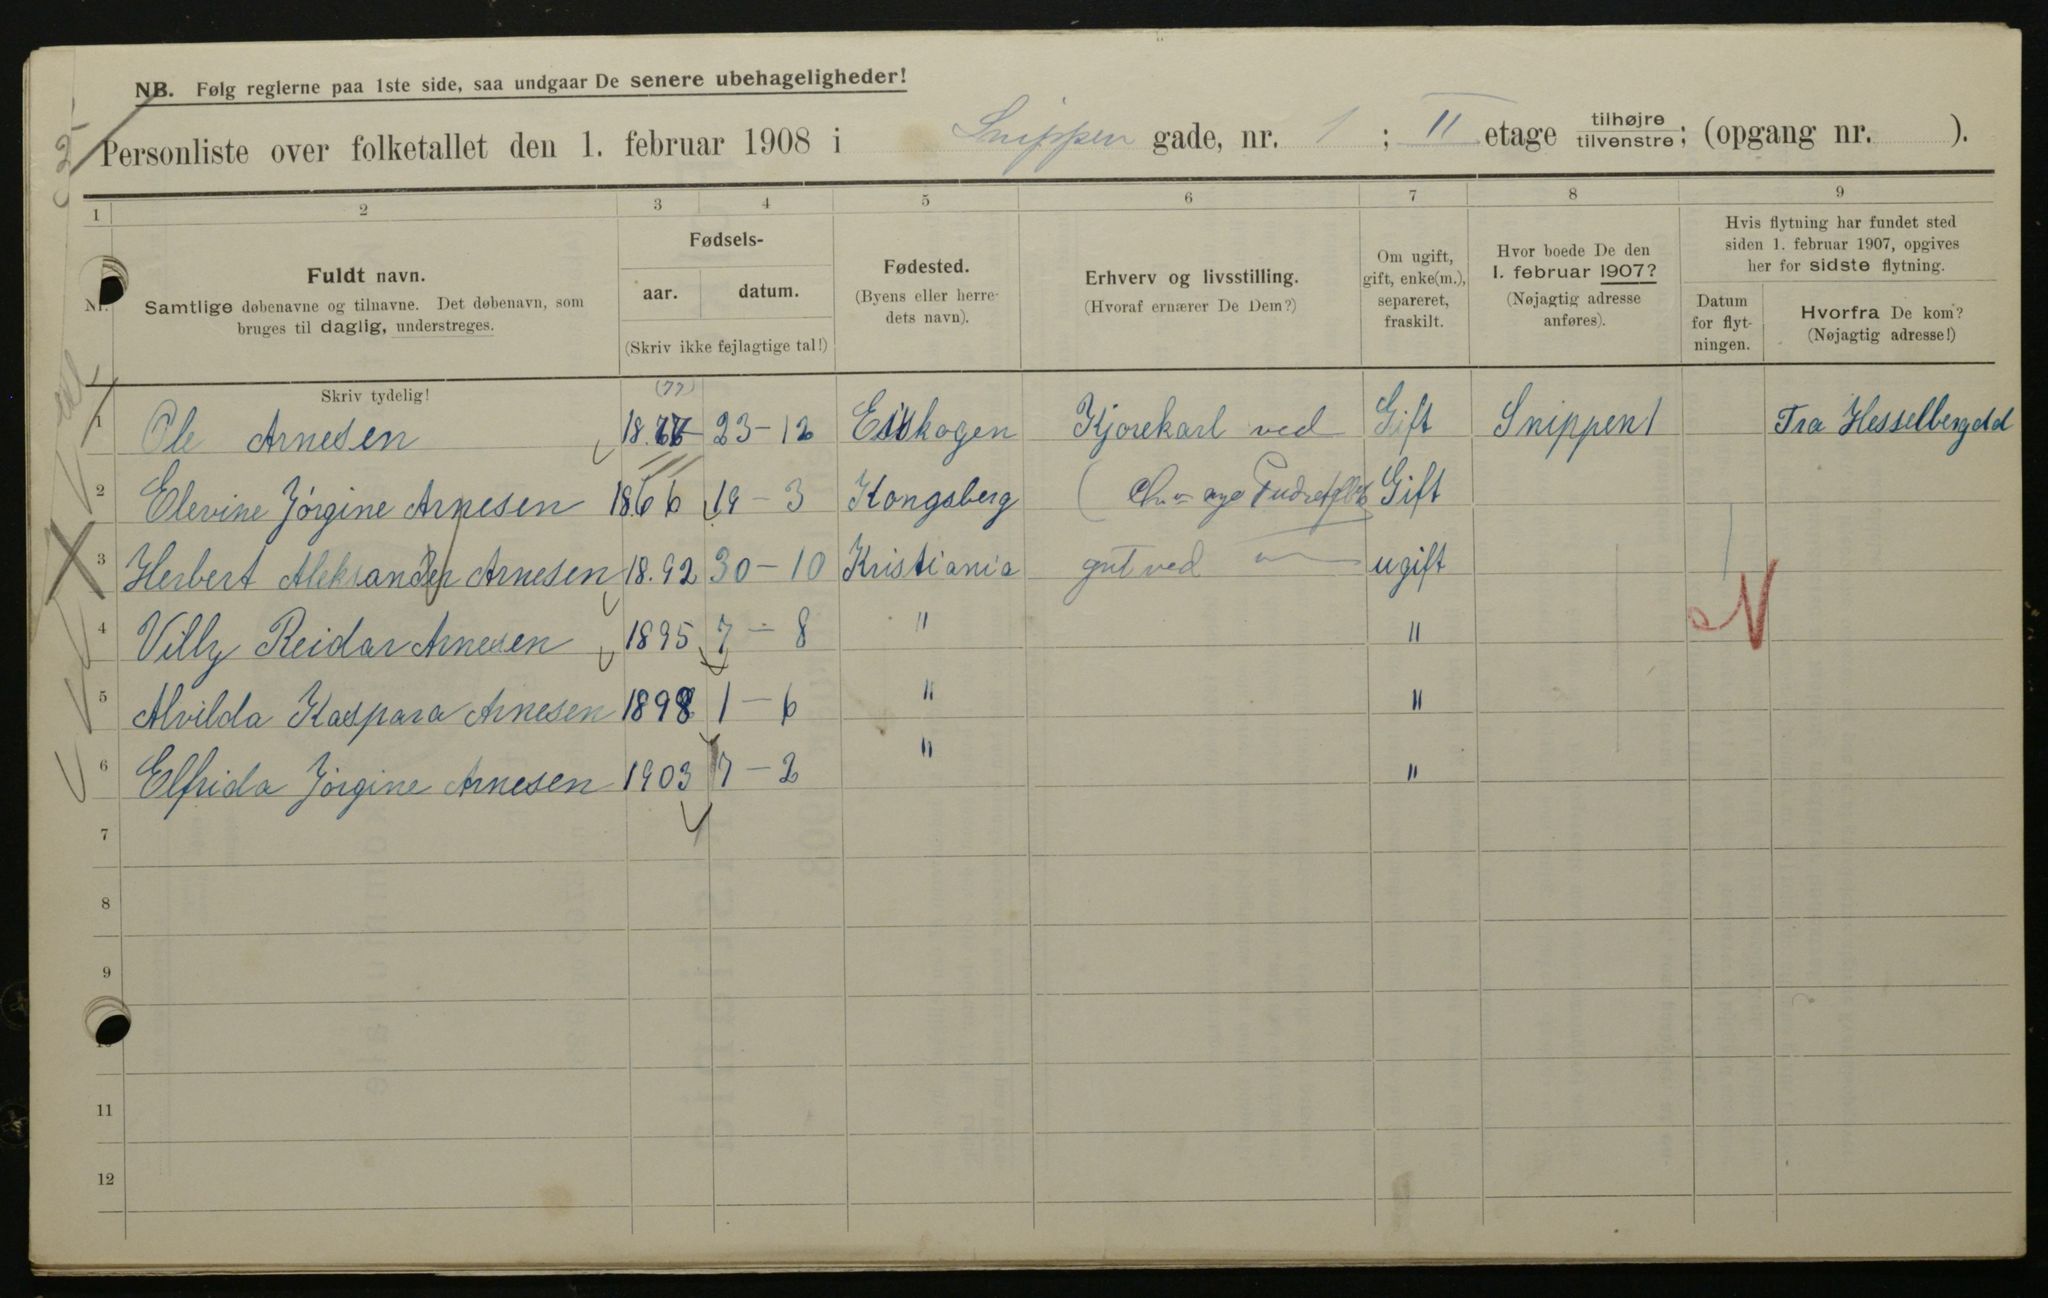 NB. Følg reglerne paa 1ste side, saa undgaar De senere ubehageligheder!
Personliste over folketallet den 1. februar 1908 i Snippen gade, nr. 1 ; II etage tilhøjre tilvenstre; (opgang nr. ).
1 2 3 4 5 6 7 8 9
Nr.
Fuldt navn.
Samtlige døbenavne og tilnavne. Det døbenavn, som
bruges til daglig, understreges.
Fødsels-
aar. datum.
(Skriv ikke fejlagtige tal!)
Fødested.
(Byens eller herre-
dets navn).
Erhverv og livsstilling.
(Hvoraf ernærer De Dem?)
Om ugift,
gift, enke(m.),
separeret,
fraskilt.
Hvor boede De den
1. februar 1907?
(Nøjagtig adresse
anføres).
Hvis flytning har fundet sted
siden 1. februar 1907, opgives
her for sidste flytning.
Datum
for flyt-
ningen.
Hvorfra De kom?
(Nøjagtig adresse!)
Skriv tydelig!
(77)
1 Ole Arnesen 23-12 Eiskogen Kjørekarl ved Gift Snippen 1 Fra Hesselbergdd
2 Elevine Jörgine Arnesen 1866 19-3 Kongsberg Gift
3 Herbert Aleksander Arnesen 18.92 30-10 Kristiania gut ved " ugift
4 Villy Reidar Arnesen 1895 7-8 " "
5 Alvilda Kaspara Arnesen 1898 1-6 " "
6 Elfrida Jörgine Arnesen 1903 7-2 " "
N
7
8
9
11
12